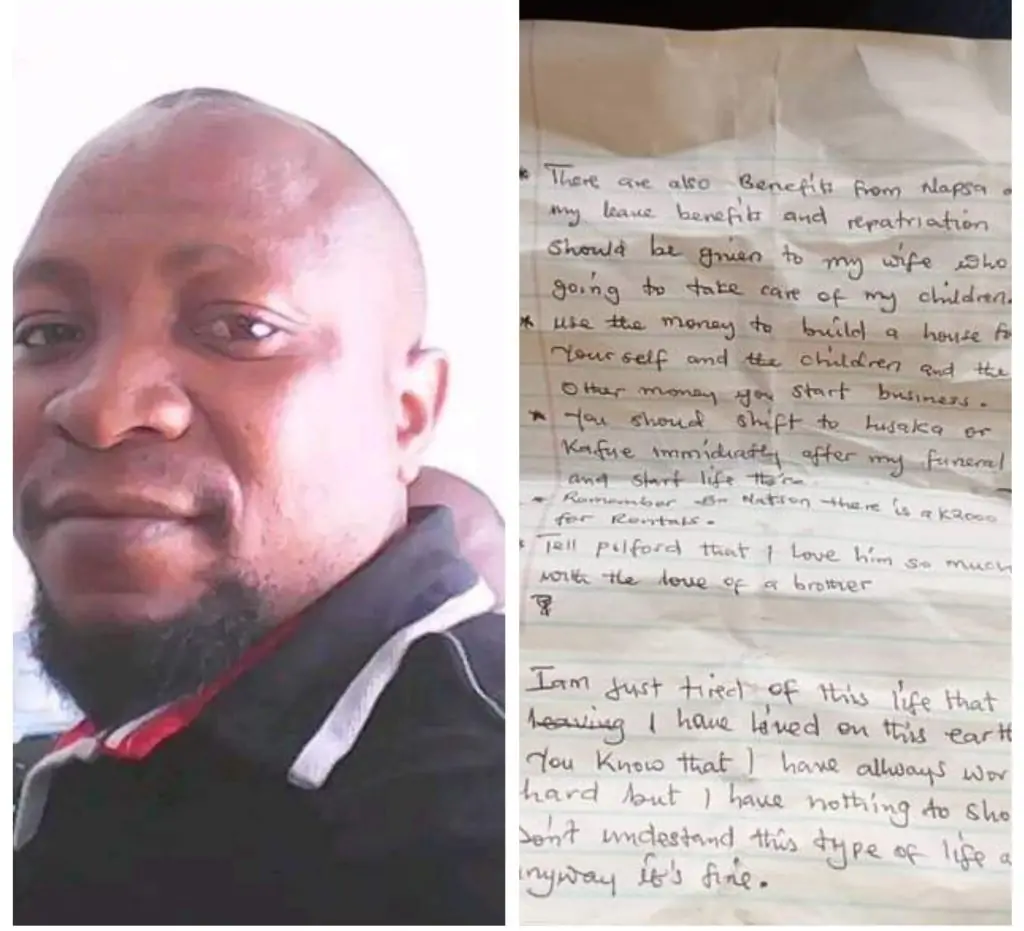 * There are also Benefits from Napsa
my leave benefits and repatriation
should be given to my wife who
going to take care of my children.
* use the money to build a house fo
Yourself and the children and the
Other money you start business.
* You shoud shift to Lusaka or
Kafue immidiatly after my funeral
and start life there
* Remember Ba Natson there is a K2000
for Rentals.
* Tell pilford that I love him so much
with the love of a brother
I am just tired of this life that
leaving I have lived on this earth
You know that I have allways wor
hard but I have nothing to sho
Don't undestand this type of life a
nyway it's fine.